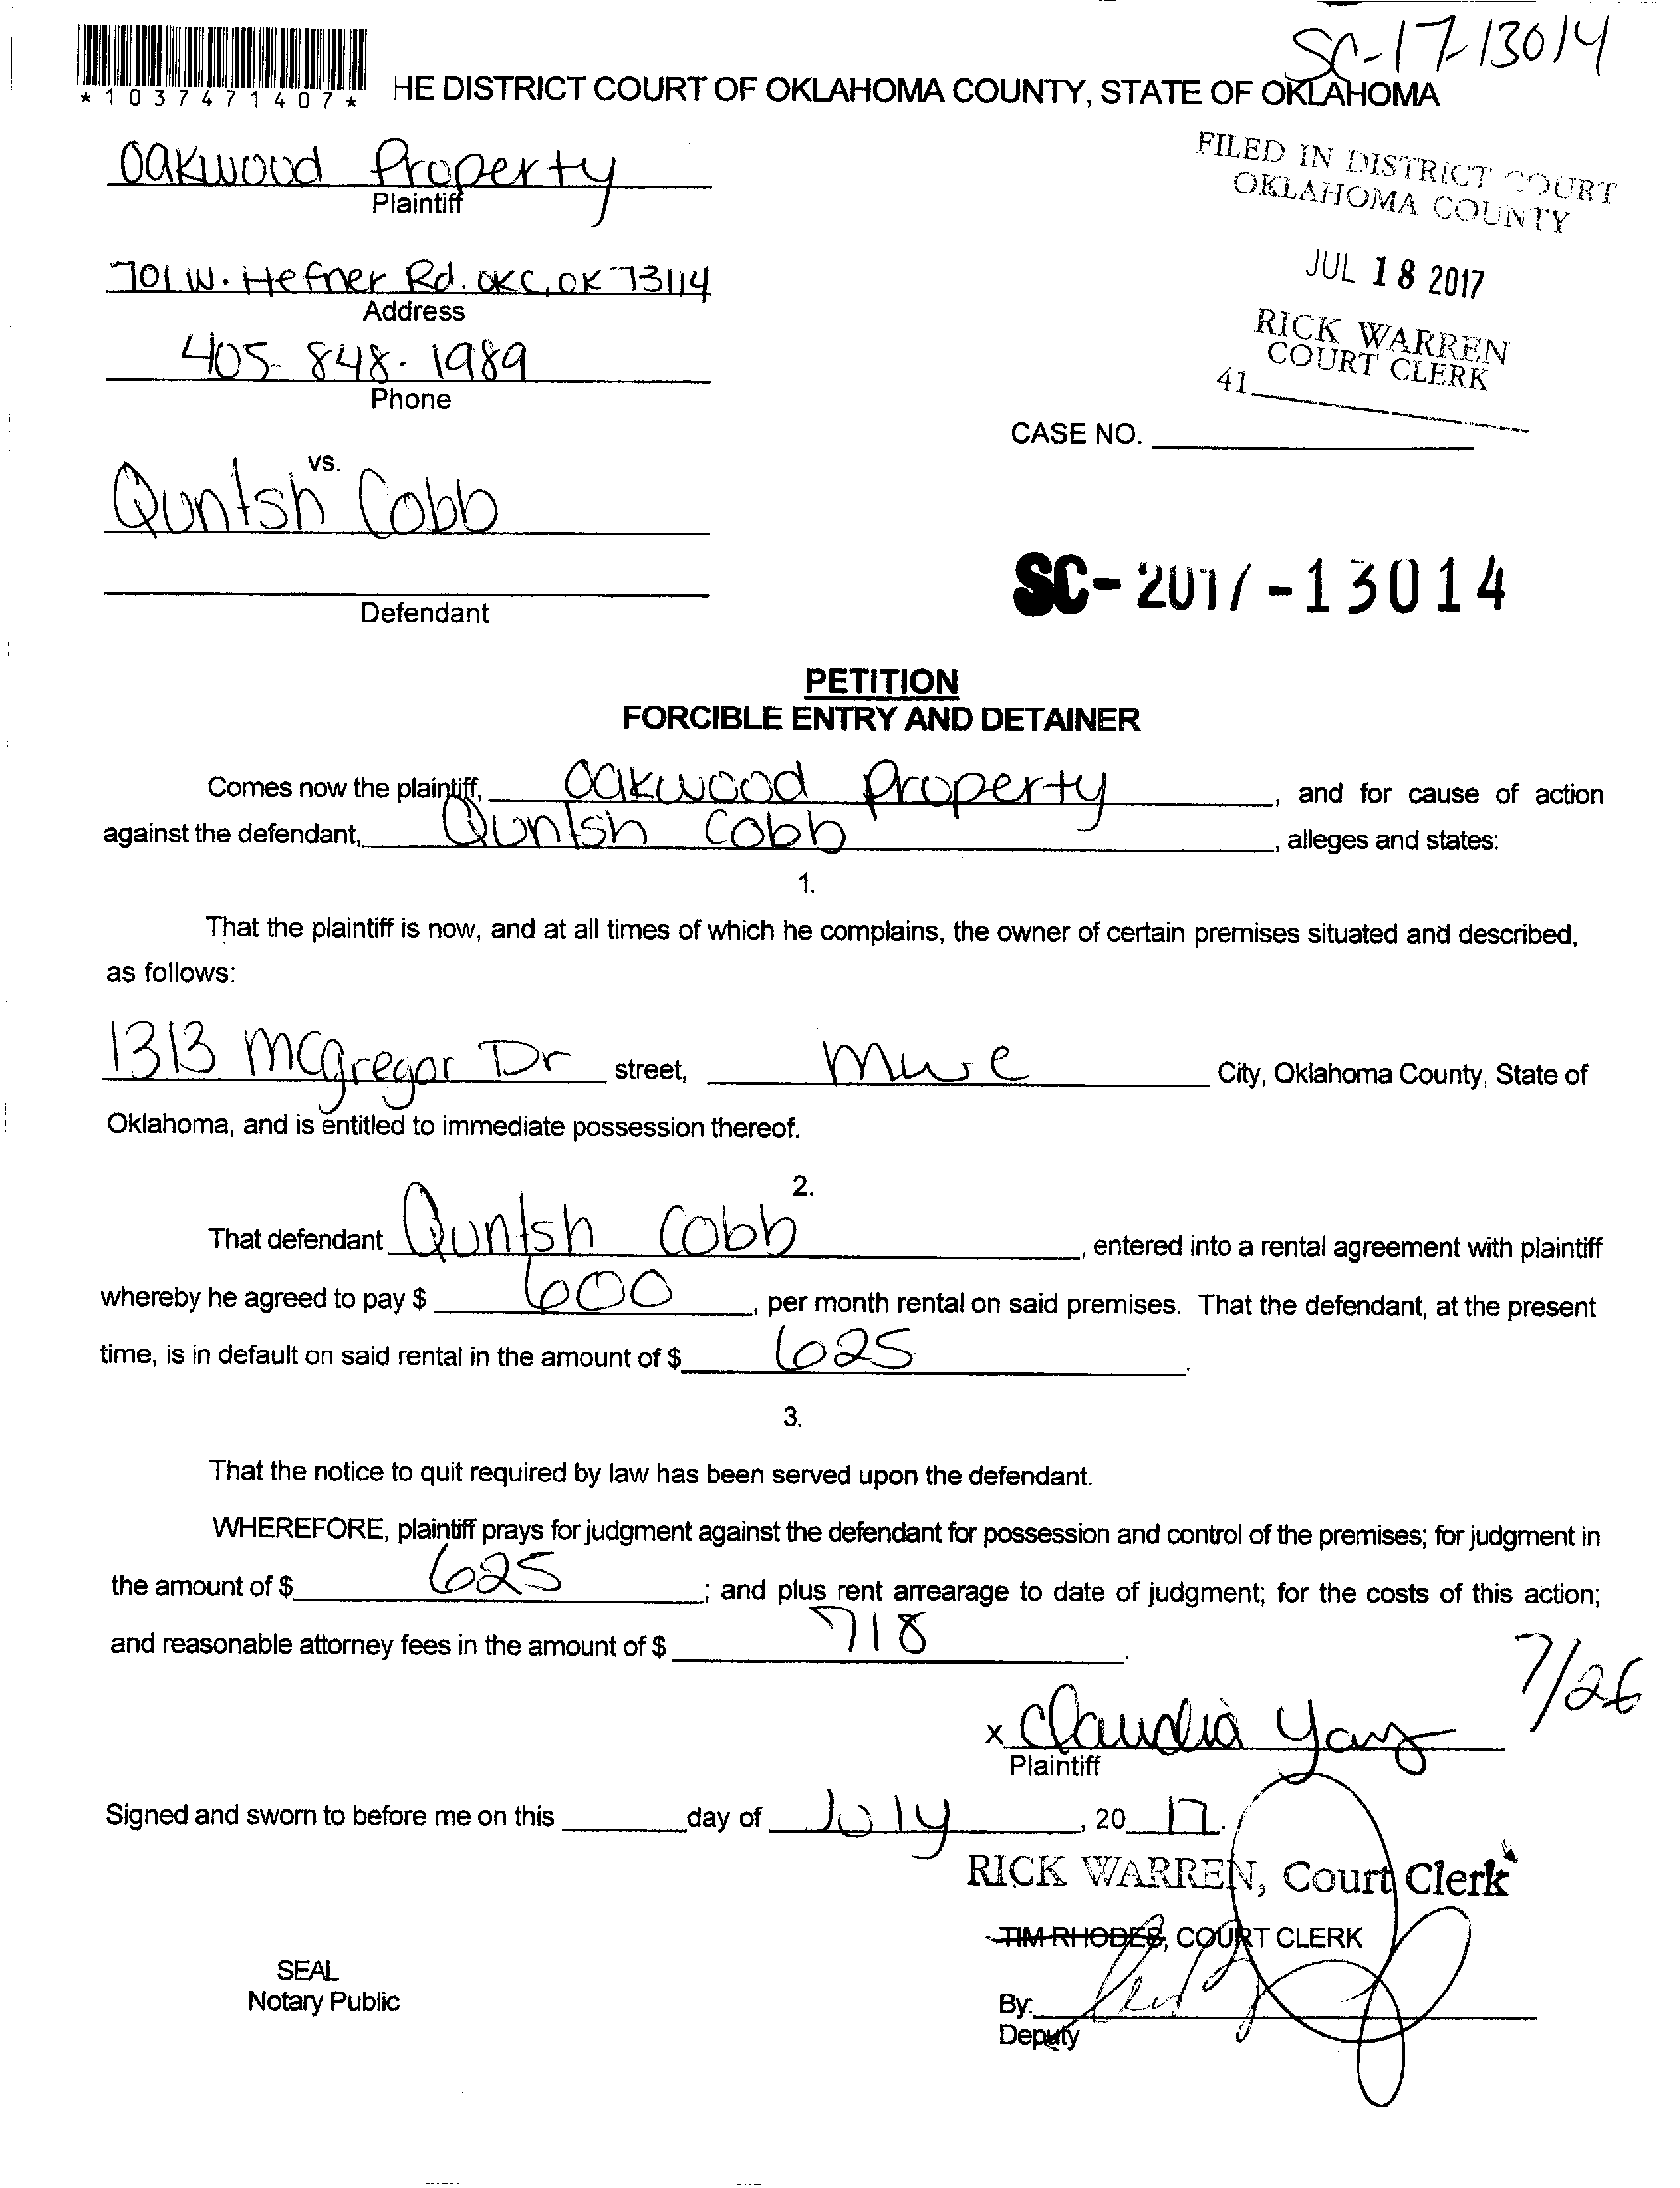 SC-17-13014
*1037471407*
HE DISTRICT COURT OF OKLAHOMA COUNTY, STATE OF OKLAHOMA
Oakwood Property
Plaintiff
FILED IN DISTRICT COURT
OKLAHOMA COUNTY
JUL 18 2017
RICK WARREN
COURT CLERK
41
701 W. Hefner Rd. OKC, OK 73114
Address
405-848-1989
Phone
CASE NO.
vs.
Quntsh Cobb
Defendant
SC-2017-13014
PETITION
FORCIBLE ENTRY AND DETAINER
Comes now the plaintiff, Oakwood Property, and for cause of action
against the defendant, Quntsh Cobb, alleges and states:
1.
That the plaintiff is now, and at all times of which he complains, the owner of certain premises situated and described,
as follows:
1313 McGregor Dr street, MWC City, Oklahoma County, State of
Oklahoma, and is entitled to immediate possession thereof.
2.
That defendant Quntsh Cobb, entered into a rental agreement with plaintiff
whereby he agreed to pay $ 600, per month rental on said premises. That the defendant, at the present
time, is in default on said rental in the amount of $ 625.
3.
That the notice to quit required by law has been served upon the defendant.
WHEREFORE, plaintiff prays for judgment against the defendant for possession and control of the premises; for judgment in
the amount of $ 625; and plus rent arrearage to date of judgment; for the costs of this action;
and reasonable attorney fees in the amount of $ 718.
7/26
x Claudia Yanz
Plaintiff
Signed and sworn to before me on this ____ day of July, 20 17.
RICK WARREN, Court Clerk
TIM RHODES, COURT CLERK
SEAL
Notary Public
By:
Deputy